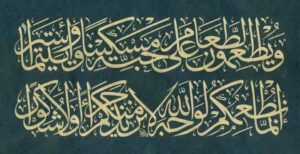 ويطعمون الطعام على حبه مسكينا ويتيما وأسيرا
إنما نطعمكم لوجه الله لا نريد منكم جزاء ولا شكورا